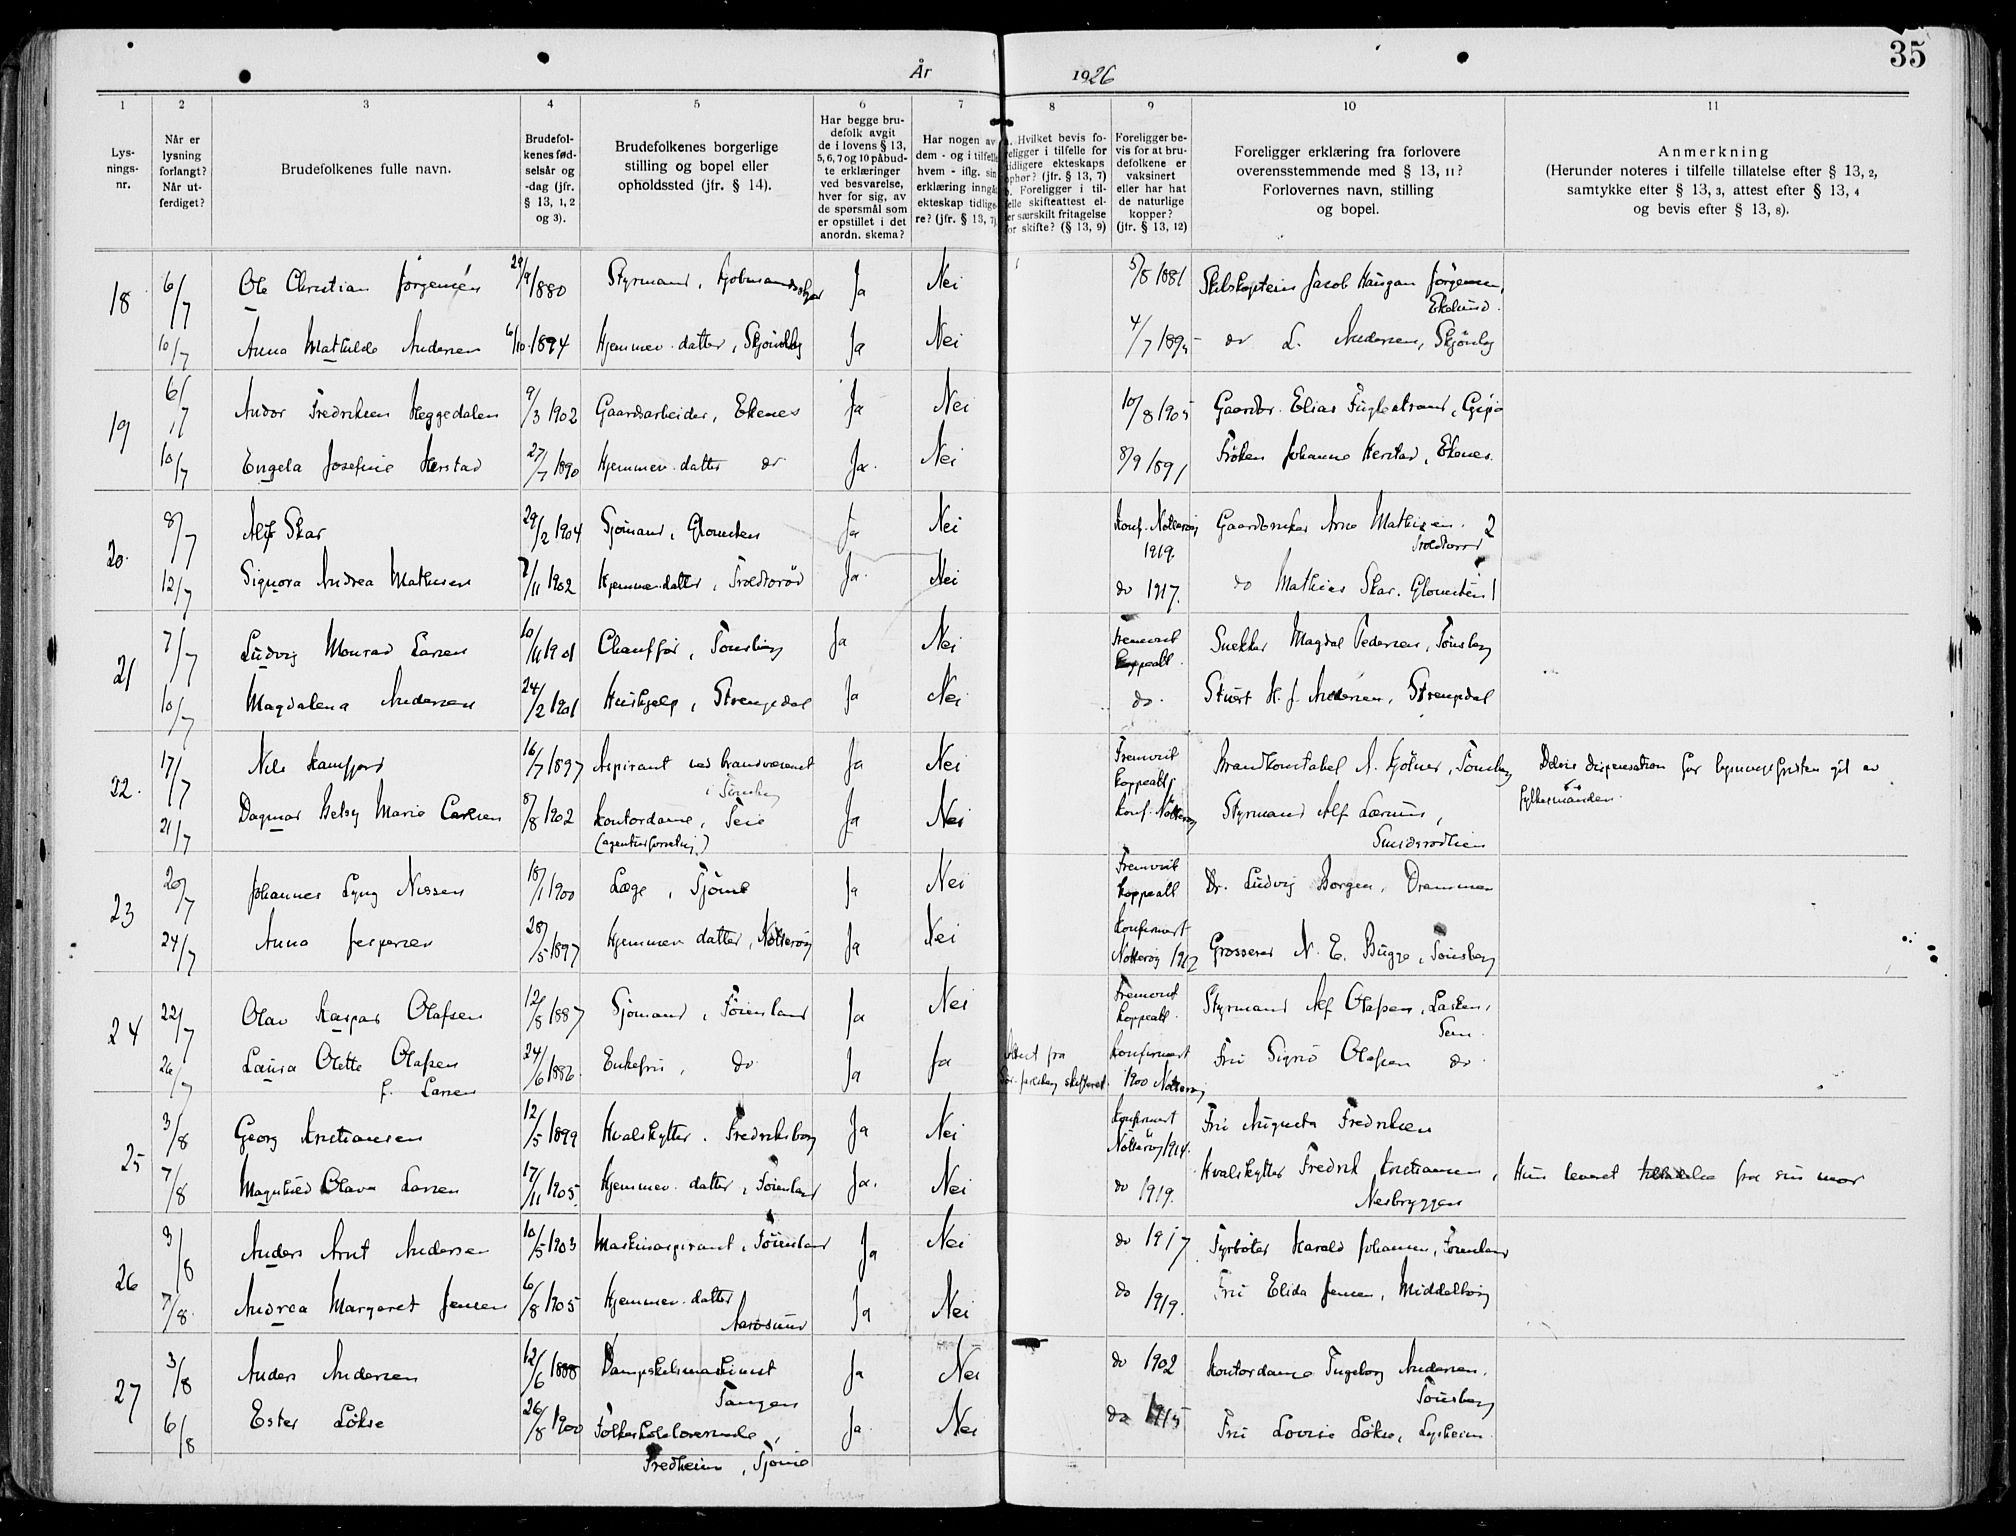 35
År 1926
1 2 3 4 5 6 7 8 9 10 11
Lysningsnr.
Når er lysning forlangt? Når utferdiget?
Brudefolkenes fulle navn.
Brudefolkenes fødselsår og -dag (jfr. § 13, 1, 2 og 3).
Brudefolkenes borgerlige stilling og bopel eller opholdssted (jfr. § 14).
Har begge brudefolk avgit de i lovens § 13, 5, 6, 7 og 10 påbudte erklæringer ved besvarelse, hver for sig, av de spørsmål som er opstillet i det anordn. skema?
Har nogen av dem - og i tilfelle hvem - iflg. sin erklæring inngått ekteskap tidligere? (jfr. § 13, 7)
a. Hvilket bevis foreligger i tilfelle for tidligere ekteskaps ophør? (jfr. § 13, 7) b. Foreligger i tilfelle skifteattest eller særskilt fritagelse for skifte? (§ 13, 9)
Foreligger bevis for at brudefolkene er vaksinert eller har hat de naturlige kopper? (jfr. § 13, 12)
Foreligger erklæring fra forlovere overensstemmende med § 13, 11? Forlovernes navn, stilling og bopel.
Anmerkning (Herunder noteres i tilfelle tillatelse efter § 13, 2, samtykke efter § 13, 3, attest efter § 13, 4 og bevis efter § 13, 8).
18 6/7 Ole Christian Jörgensen 29/9 1880 Styrmand, Ja Nei 5/8 1881 Skibskaptein Jacob Haugan Jörgensen, Ekelund.
10/7 Anna Mathilde Andersen 6/10 1894 Hjemmev. datter, Ja Nei 4/7 1895 do L. Andersen,
19 6/7 Andor Fredriksen Heggedalen 9/3 1902 Gaardsarbeider, Ekenes Ja Nei 10/8 1905 Gaardbr. Elias Fuglestrand, Gipö
10/7 Engela Josefine Herstad 27/7 1890 Hjemmev. datter do Ja. Nei 8/9 1891 Fröken Johanne Herstad, Ekenes.
20. 8/7 Alf Skar 29/2 1904 Sjömand, Glomsten Ja Nei Konf. Nötteröy 1919. Gaardbruker Arne Mathisen. 2
12/7 Signora Andrea Mathisen 7/11 1902 Hjemmev. datter, Ja. Nei do 1917. do Mathias Skar. Glomsten 1
21 7/7 Ludvig Monrad Larsen 10/11 1901 Chaufför, Tönsberg Ja Nei Fremvist koppeatt. Snekker Magdal Pedersen, Tönsberg
10/7 Magdalena Andersen 24/2 1901 Hushjelp, Strengsdal Ja Nei do. Stuert H. J. Andersen, Strengsdal
22. 17/7 Nils Kamfjord 16/7 1897 Aspirant ved brandvæsenet i Tönsberg Ja Nei Fremvist koppeatt. Brandkonstabel A. Kjölner, Tönsberg Delvis dispensation for lysningsfristen git av fylkesmanden.
21/7 Dagmar Betsy Marie Carlsen 8/8 1902 Kontordame, Teie (agenturforretng.) Ja Nei Konf. Nötteröy Styrmand Alf Lærum, Smidsrödlien
23 20/7 Johannes Lyng Nissen 18/1 1900 Læge, Tjöme Ja Nei Fremvist koppeatt Dr. Ludvig Borgen, Drammen
24/7 Anna Jespersen 28/5 1897 Hjemmev. datter, Nötteröy Ja Nei Konfirmert Nötteröy 1912 Grosserer N. E. Bugge, Tönsberg
24 22/7 Olav Kaspar Olafsen 12/8 1887 Sjömand, Föienland Ja Nei Fremvist koppeatt. Styrmand Alf Olafsen, Sem.
26/7 Laura Olette Olafsen f. Larsen 24/6 1886. Enkefru, do Ja Ja Attest fra Konfirmert 1900 Nötteröy Fru Signe Olafsen do.
25 3/8 Georg Kristiansen 12/5 1899 Hvalskytter. Fredriksborg Ja Nei Konfirmert Nötteröy 1914. Fru Augusta Fredriksen
7/8 Magnhild Olava Larsen 17/11 1905. Hjemmev. datter, Föienland Ja. Nei do 1919. Hvalskytter Fredrik Kristiansen, Nesbryggen Hun leveret tilladelse fra sin mor
26 3/8 Anders Arnt Andersen 10/5 1903 Maskinaspirant, Föienland Ja Nei do 1917 Fyrböter Harald Johansen, Föienland
7/8. Andrea Margaret Jensen 6/8 1905 Hjemmev. datter Aarösund Ja Nei do 1919. Fru Elida Jensen, Middelborg
27 3/8 Anders Andersen 12/6 1888 Dampskibsmaskinist Tangen Ja Nei do 1902 Kontordame Ingeborg Andersen. Tönsberg
6/8 Ester Lökse 26/8 1900 Folkeskolelærerinde, Fredheim, Tjöme Ja. Nei do 1915 Fru Lovise Lökse, Lysheim.